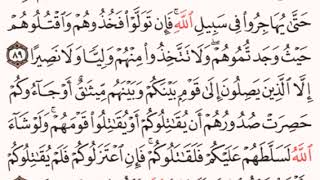 حَتَّىٰ يُهَاجِرُوا۟ فِى سَبِيلِ ٱللَّهِ ۚ فَإِن تَوَلَّوْا۟ فَخُذُوهُمْ وَٱقْتُلُوهُمْ
حَيْثُ وَجَدتُّمُوهُمْ ۖ وَلَا تَتَّخِذُوا۟ مِنْهُمْ وَلِيًّا وَلَا نَصِيرًا ٨٩
إِلَّا ٱلَّذِينَ يَصِلُونَ إِلَىٰ قَوْمٍۭ بَيْنَكُمْ وَبَيْنَهُم مِّيثَـٰقٌ أَوْ جَآءُوكُمْ
حَصِرَتْ صُدُورُهُمْ أَن يُقَـٰتِلُوكُمْ أَوْ يُقَـٰتِلُوا۟ قَوْمَهُمْ ۚ وَلَوْ شَآءَ
ٱللَّهُ لَسَلَّطَهُمْ عَلَيْكُمْ فَلَقَـٰتَلُوكُمْ ۚ فَإِنِ ٱعْتَزَلُوكُمْ فَلَمْ يُقَـٰتِلُوكُمْ